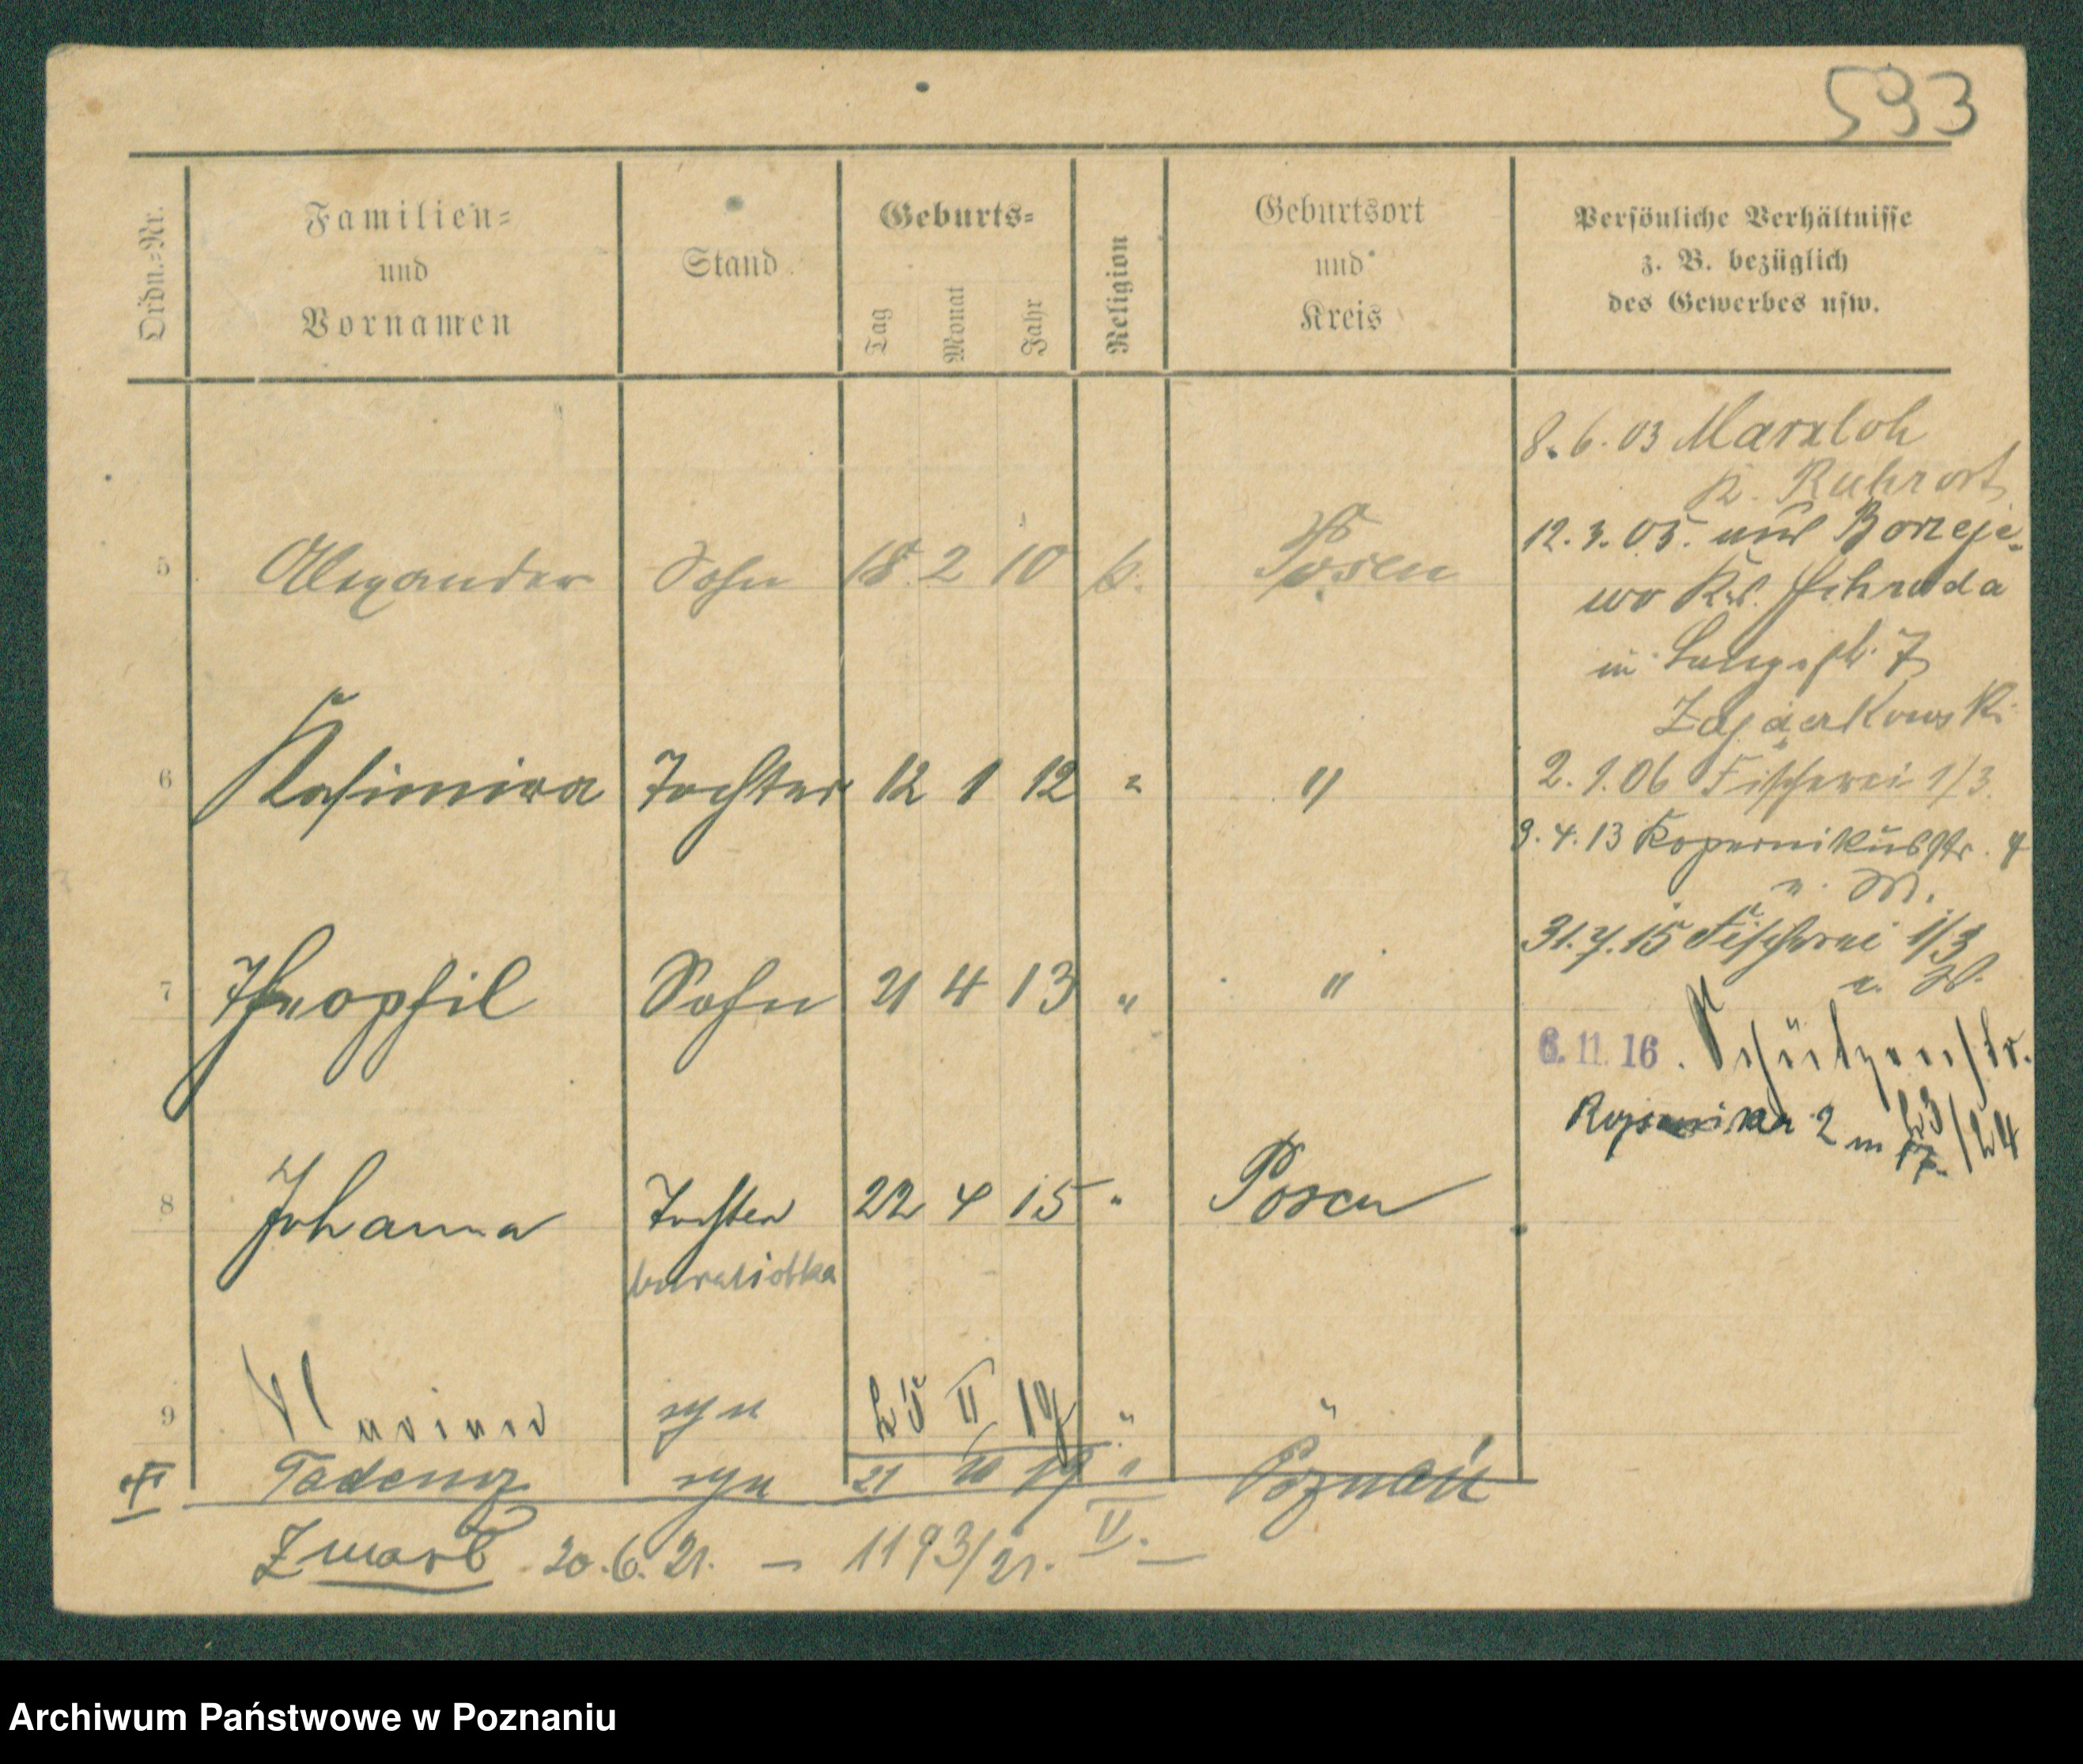 593
Ordn.-Nr.
Familien-
und
Vornamen
Stand
Geburts-
Tag
Monat
Jahr
Religion
Geburtsort
und
Kreis
Persönliche Verhältnisse
z. B. bezüglich
des Gewerbes usw.
8. 6. 03 Marxloh
K. Ruhrort
12. 3. 05. aus Borzeje-
wo Krs. Schroda
in Langestr. 7
2. 1. 06 Fischerei 1/3.
9. 4. 13 Kopernikusstr. 4
31. 7. 15 Fischerei 1/3
6. 11. 16. Schützenstr.
Kopernika 2 m 23/24
5 Alexander Sohn 18 2 10 k. Posen
6 Kasimira Tochter 12 1 12 " "
7 Theophil Sohn 21 4 13 " "
8 Johanna Tochter 22 4 15 " Posen
9 Maryan syn 25 II 19 " "
Tadeusz syn 21 10 19 " Poznań
Zmarł 20. 6. 21. — 1193/21. II. —
Archiwum Państwowe w Poznaniu